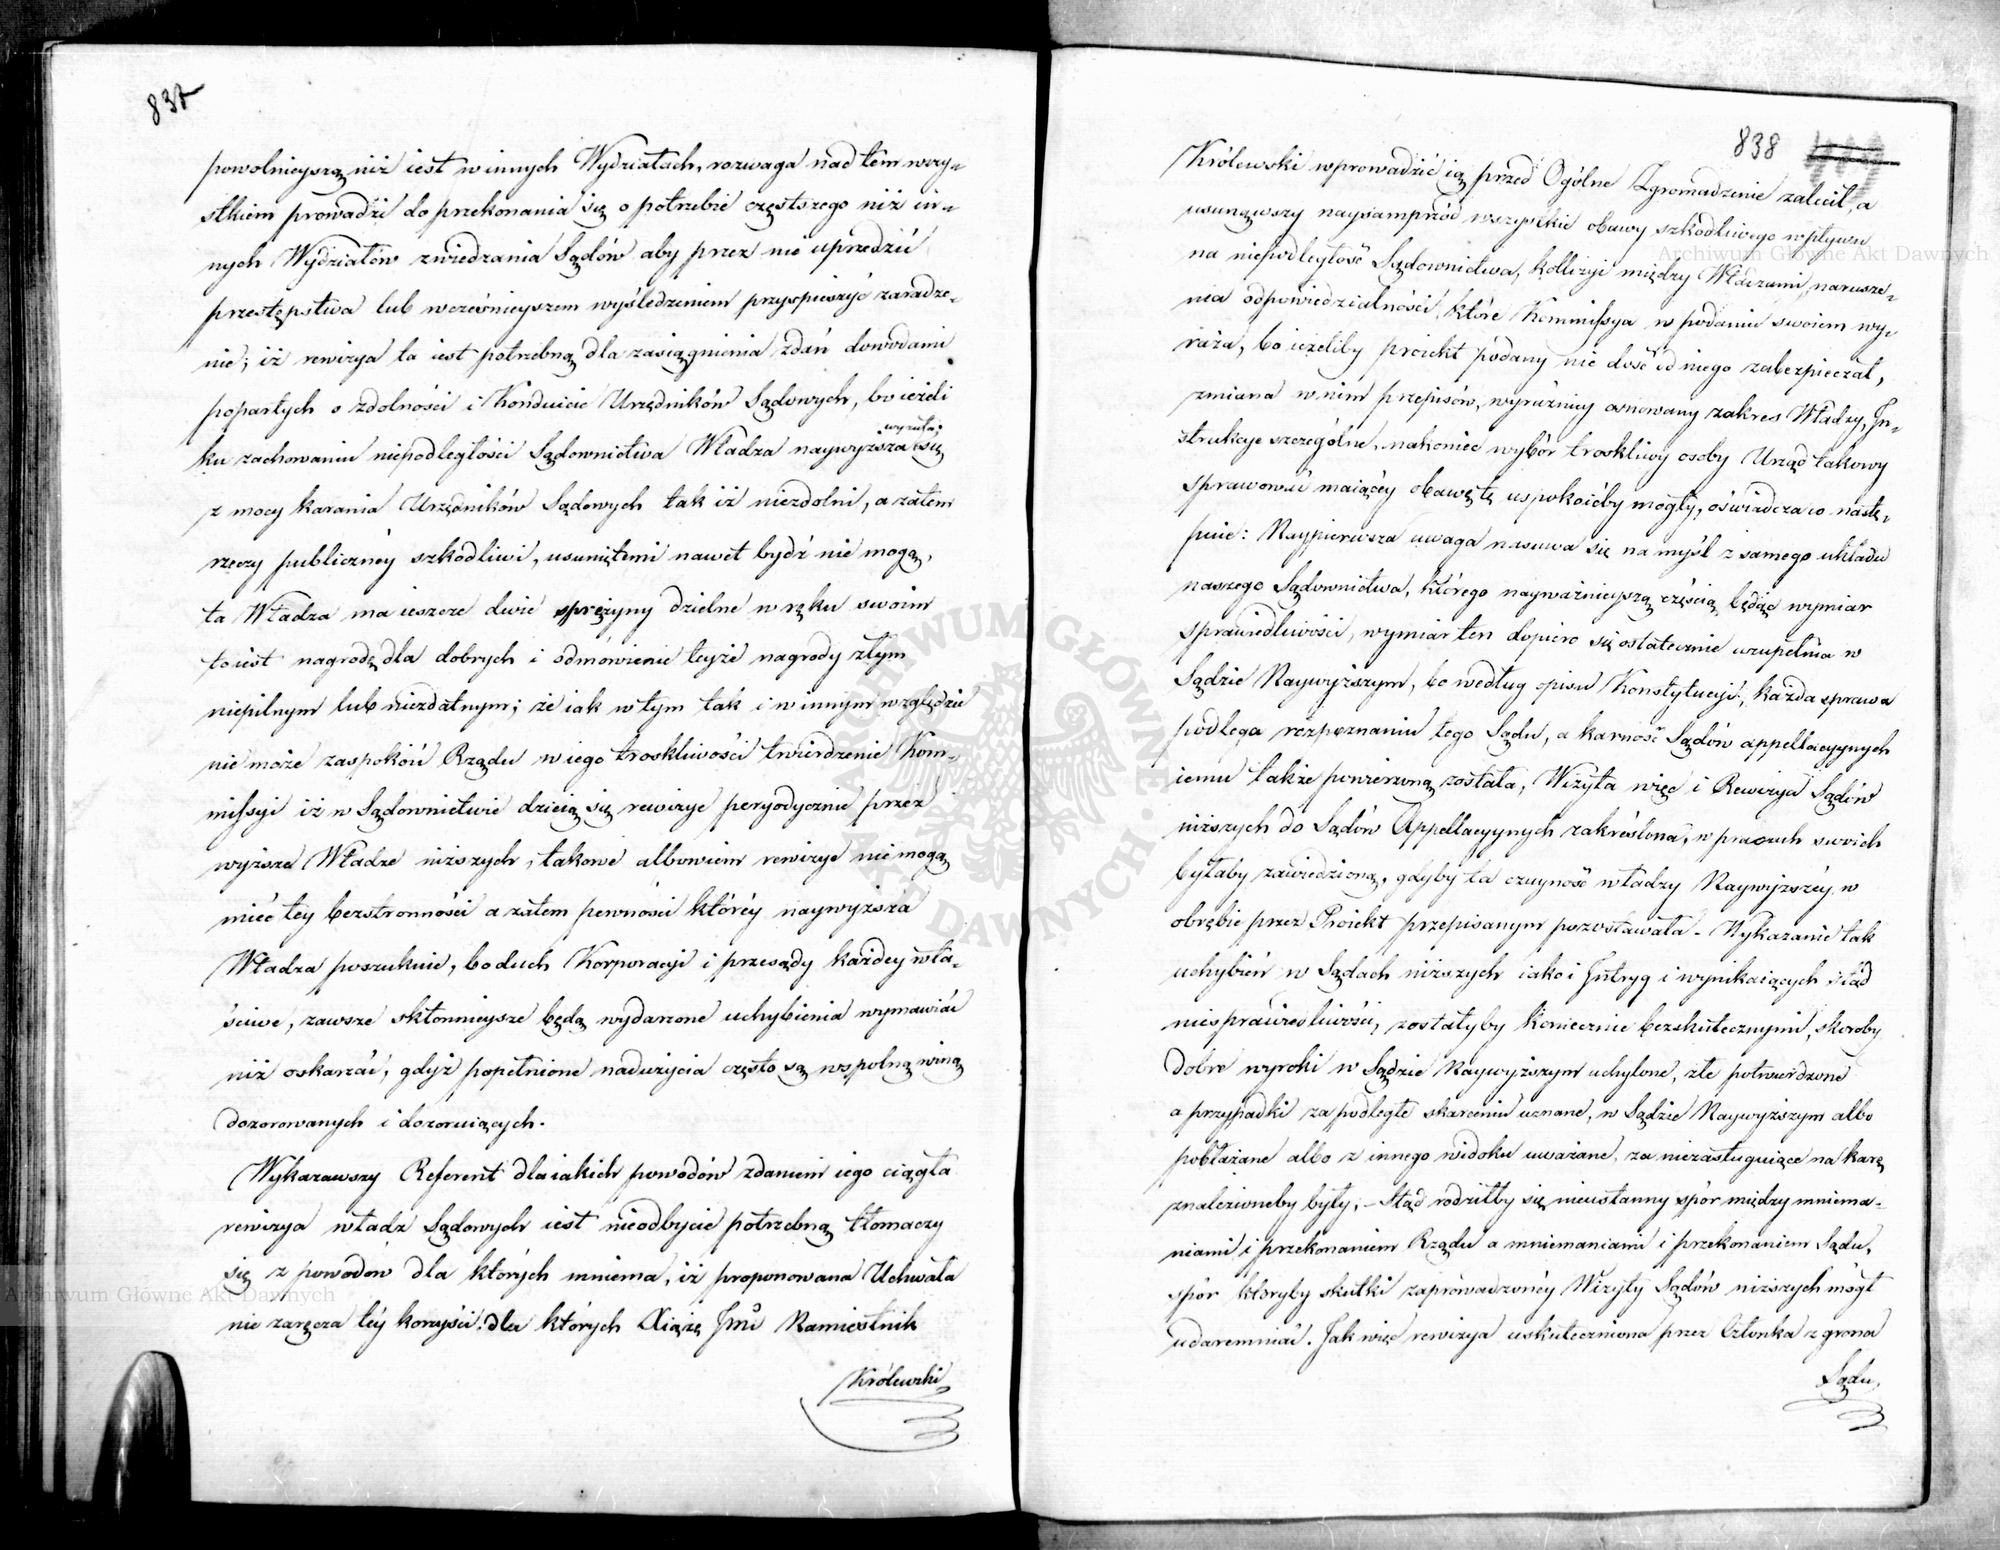 837
powolnieyszą niż iest w innych Wydziałach, rozwaga nad tém wszy-
stkiem prowadzi do przekonania się o potrzebie częstszego niż in-
nych Wydziałów zwiedzania Sądów aby przez nie uprzedzić
przestępstwa lub wcześnieyszem wyśledzeniem przyspieszyć zaradze-
nie; iż rewizya ta iest potrzebną dla zasiągnienia zdań dowodami
popartych o zdolności i Konduicie Urzędników Sądowych, bo ieżeli
wyzuła
ku zachowaniu niepodległości Sądownictwa Władza naywyższa się
z mocy karania Urzędników Sądowych tak iż niezdolni, a zatem
rzeczy publiczney szkodliwi, usuniętemi nawet bydź nie mogą,
ta Władza ma ieszcze dwie sprężyny dzielne w ręku swoim
to iest nagrodę dla dobrych i odmówienie teyże nagrody złym
niepilnym lub niezdatnym; że iak w tym tak i w innym względzie
nie może zaspokoić Rządu w iego troskliwości twierdzenie Kom-
missyi iż w Sądownictwie dzieią się rewizye peryodycznie przez
wyższe Władze niższych, takowe albowiem rewizye nie mogą
mieć tey bezstronności a zatem pewności któréy naywyższa
Władza poszukuie, bo duch Korporacyi i przesądy każdey wła-
ściwe, zawsze skłonnieysze będą wydarzone uchybienia wymawiać
niż oskarżać, gdyż popełnione nadużycia często są wspolną winą
dozorowanych i dozoruiących.
Wykazawszy Referent dla iakich powodów zdaniem iego ciągła
rewizya władz Sądowych iest nieodbycie potrzebną tłomaczy
się z powodów dla których mniema, iż proponowana Uchwała
nie zaręcza téy korzyści dla których Xiążę Jmć Namiestnik
Królewski
838
Królewski wprowadzić ią przed Ogólne Zgromadzenie zalecił, a
usunąwszy naysamprzód wszystkie obawy szkodliwego wpływu
na niepodległość Sądownictwa, kollizyi między Władzami, narusze-
nia odpowiedzialności, które Kommissya w podaniu swoiem wy-
raża, bo ieżeliby proiekt podany nie dość od niego zabezpieczał,
zmiana w nim przepisów, wyraźniey osnowany zakres Władzy, In-
strukcye szczególne, nakoniec wybór troskliwy osoby Urząd takowy
sprawować maiącéy obawę tę uspokoićby mogły, oświadcza co nastę-
puie: Naypierwsza uwaga nasuwa się na myśl z samego układu
naszego Sądownictwa, którego nayważnieyszą częścią będąc wymiar
sprawiedliwości, wymiar ten dopiero się ostatecznie uzupełnia w
Sądzie Naywyższym, bo według opisu Konstytucyi, każda sprawa
podlega rozpoznaniu tego Sądu, a karność Sądów appellacyynych
iemu także powierzoną została, Wizyta więc i Rewizya Sądów
niższych do Sądów Appellacyynych zakreślona, w pracach swoich
byłaby zawiedzioną, gdyby ta czuyność władzy Naywyższéy w
obrębie przez Proiekt przepisanym pozostawała. Wykazanie tak
uchybień w Sądach niższych iako i Intryg i wynikaiących stąd
niesprawiedliwości, zostałyby koniecznie bezskutecznymi, skoroby
dobre wyroki w Sądzie Naywyższym uchylone, złe potwierdzone
a przypadki za podległe skarceniu uznane, w Sądzie Naywyższym albo
pobłażane albo z innego widoku uważane, za niezasługuiące na karę
znalezioneby były; – Stąd rodziłby się nieustanny spór między mniema-
niami i przekonaniem Rządu a mniemaniami i przekonaniem Sądu,
spór któryby skutki zaprowadzonéy Wizyty Sądów niższych mógł
udaremniać. Jak więc rewizya uskuteczniona przez Członka z grona
Sądu,
Archiwum Główne Akt Dawnych
Archiwum Główne Akt Dawnych
ARCHIWUM GŁÓWNE AKT DAWNYCH